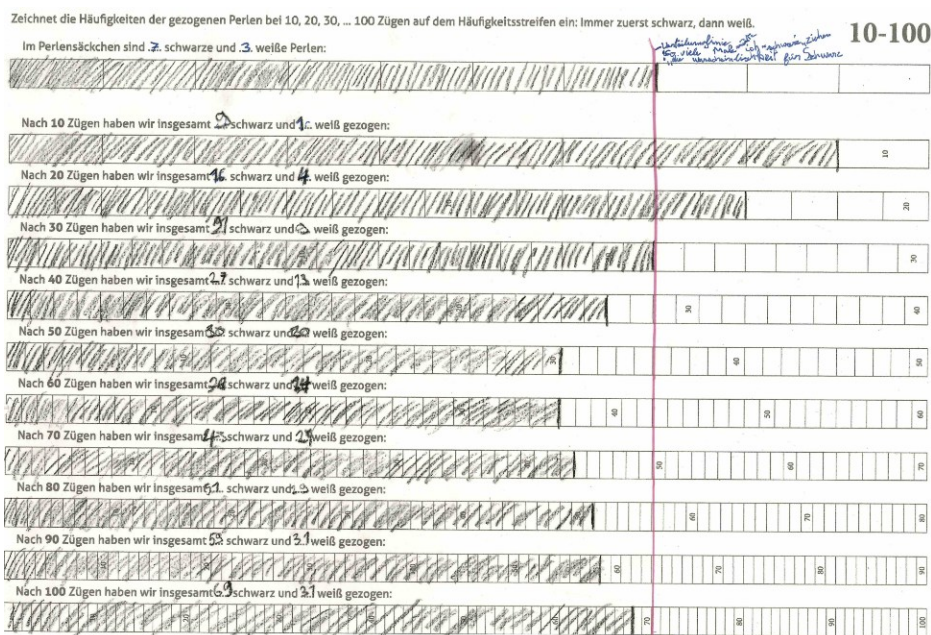 Zeichnet die Häufigkeiten der gezogenen Perlen bei 10, 20, 30, ... 100 Zügen auf dem Häufigkeitsstreifen ein: Immer zuerst schwarz, dann weiß.
10-100
Im Perlensäckchen sind .7. schwarze und .3. weiße Perlen:
so viele Male ich schwarz ziehen
für Schwarz
Nach 10 Zügen haben wir insgesamt 9 schwarz und 1 weiß gezogen:
10
Nach 20 Zügen haben wir insgesamt 16 schwarz und 4 weiß gezogen:
10 20
Nach 30 Zügen haben wir insgesamt 21 schwarz und 9 weiß gezogen:
30
Nach 40 Zügen haben wir insgesamt 27 schwarz und 13 weiß gezogen:
30 40
Nach 50 Zügen haben wir insgesamt 30 schwarz und 20 weiß gezogen:
30 40 50
Nach 60 Zügen haben wir insgesamt schwarz und 24 weiß gezogen:
40 50 60
Nach 70 Zügen haben wir insgesamt schwarz und weiß gezogen:
50 60 70
Nach 80 Zügen haben wir insgesamt 51 schwarz und 29 weiß gezogen:
60 70 80
Nach 90 Zügen haben wir insgesamt 59 schwarz und 31 weiß gezogen:
60 70 80 90
Nach 100 Zügen haben wir insgesamt 69 schwarz und 31 weiß gezogen:
70 80 90 100